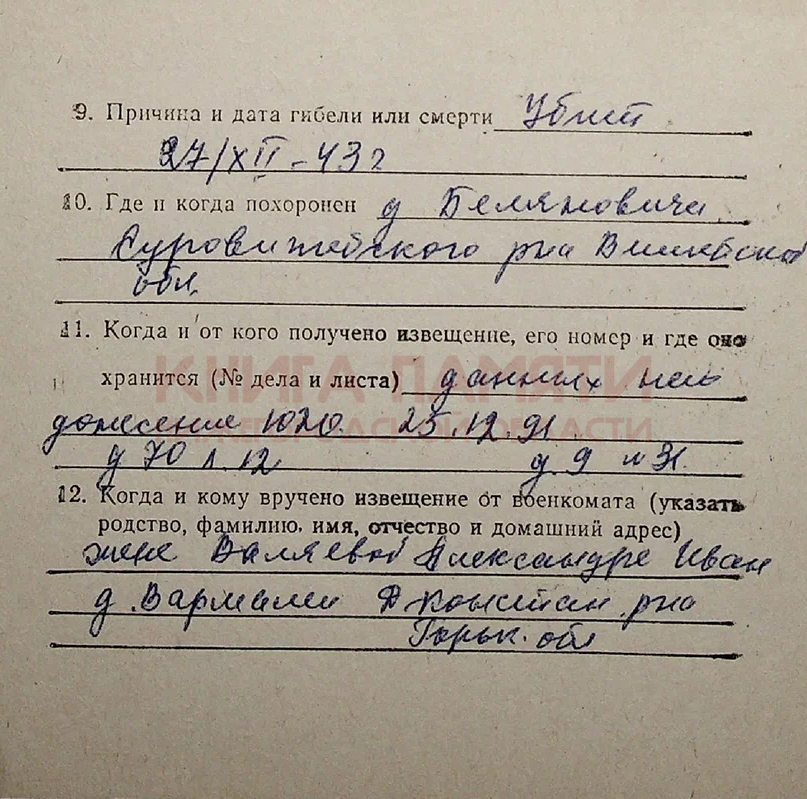 9. Причина и дата гибели или смерти Убит
27/XII - 43 г
10. Где и когда похоронен д Беляновичи
Суровижейского р-на Вилейской
обл.
11. Когда и от кого получено извещение, его номер и где оно
хранится (№ дела и листа) данных нет
КНИГА ПАМЯТИ
донесение 1020. 25.12.91.
НИЖЕГОРОДСКОЙ ОБЛАСТИ
д 70 л. 12 д. 9 л 31.
12. Когда и кому вручено извещение от военкомата (указать
родство, фамилию, имя, отчество и домашний адрес)
жене Валяевой Александре Иван
д. Вармалеи Д Констан. р-на
Горьк. обл